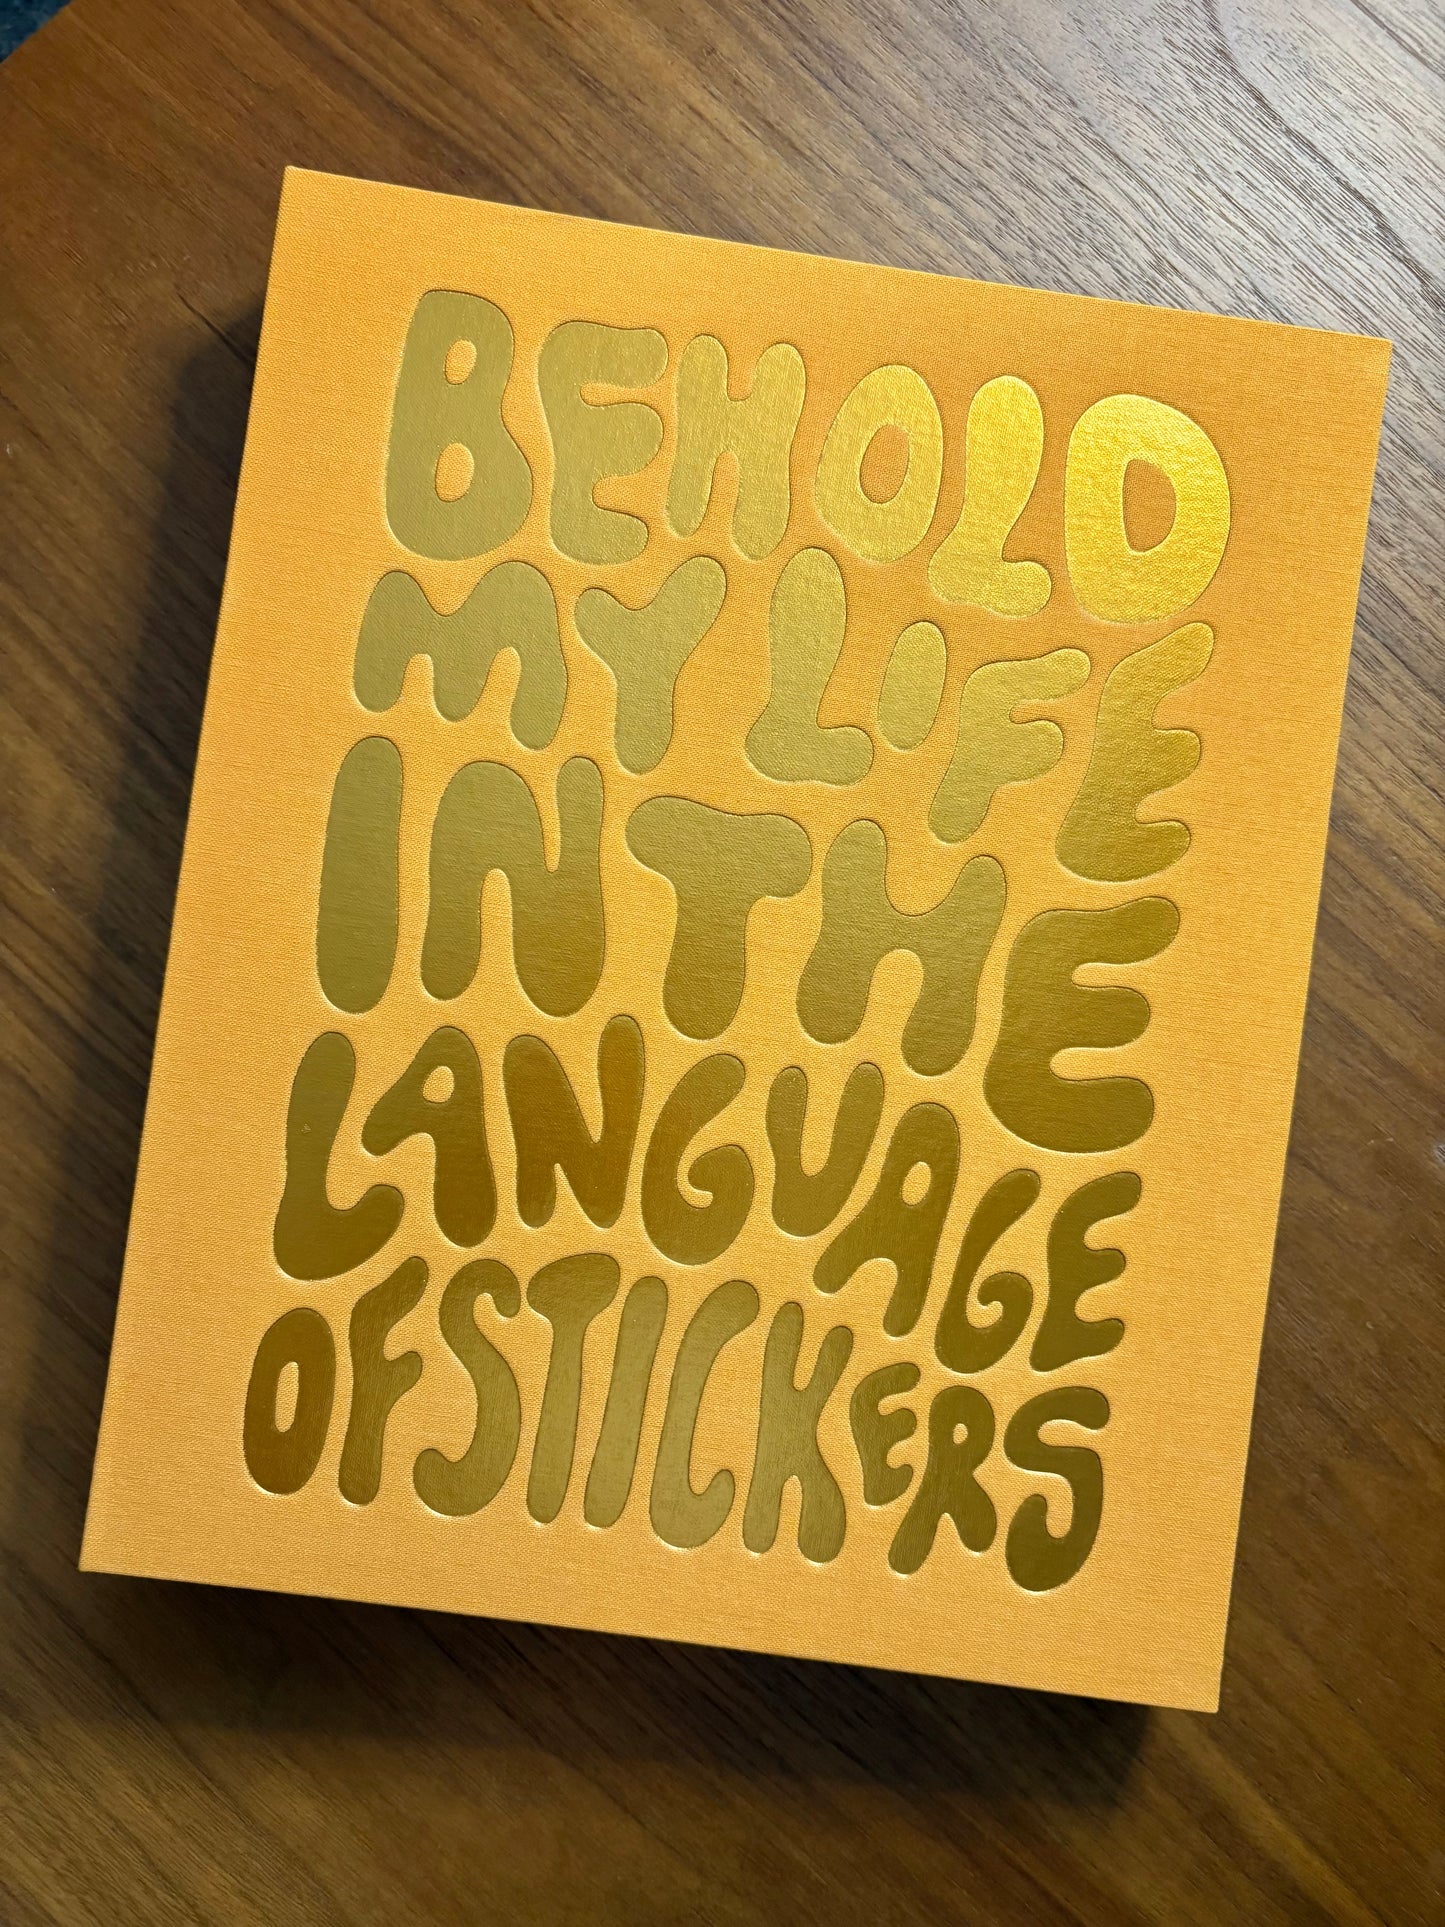 BEHOLD
MY LIFE
IN THE
LANGUAGE
OF STICKERS